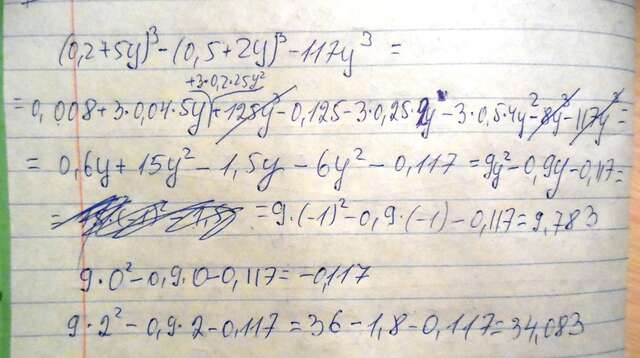 (0,2+5y)³-(0,5+2y)³-117y³=
+3·0,2·25y²
=0,008+3·0,04·5y+125y³-0,125-3·0,25·2y-3·0,5·4y²-8y³-117y³=
=0,6y+15y²-1,5y-6y²-0,117=9y²-0,9y-0,117=
= =9·(-1)²-0,9·(-1)-0,117=9,783
9·0²-0,9·0-0,117=-0,117
9·2²-0,9·2-0,117=36-1,8-0,117=34,083